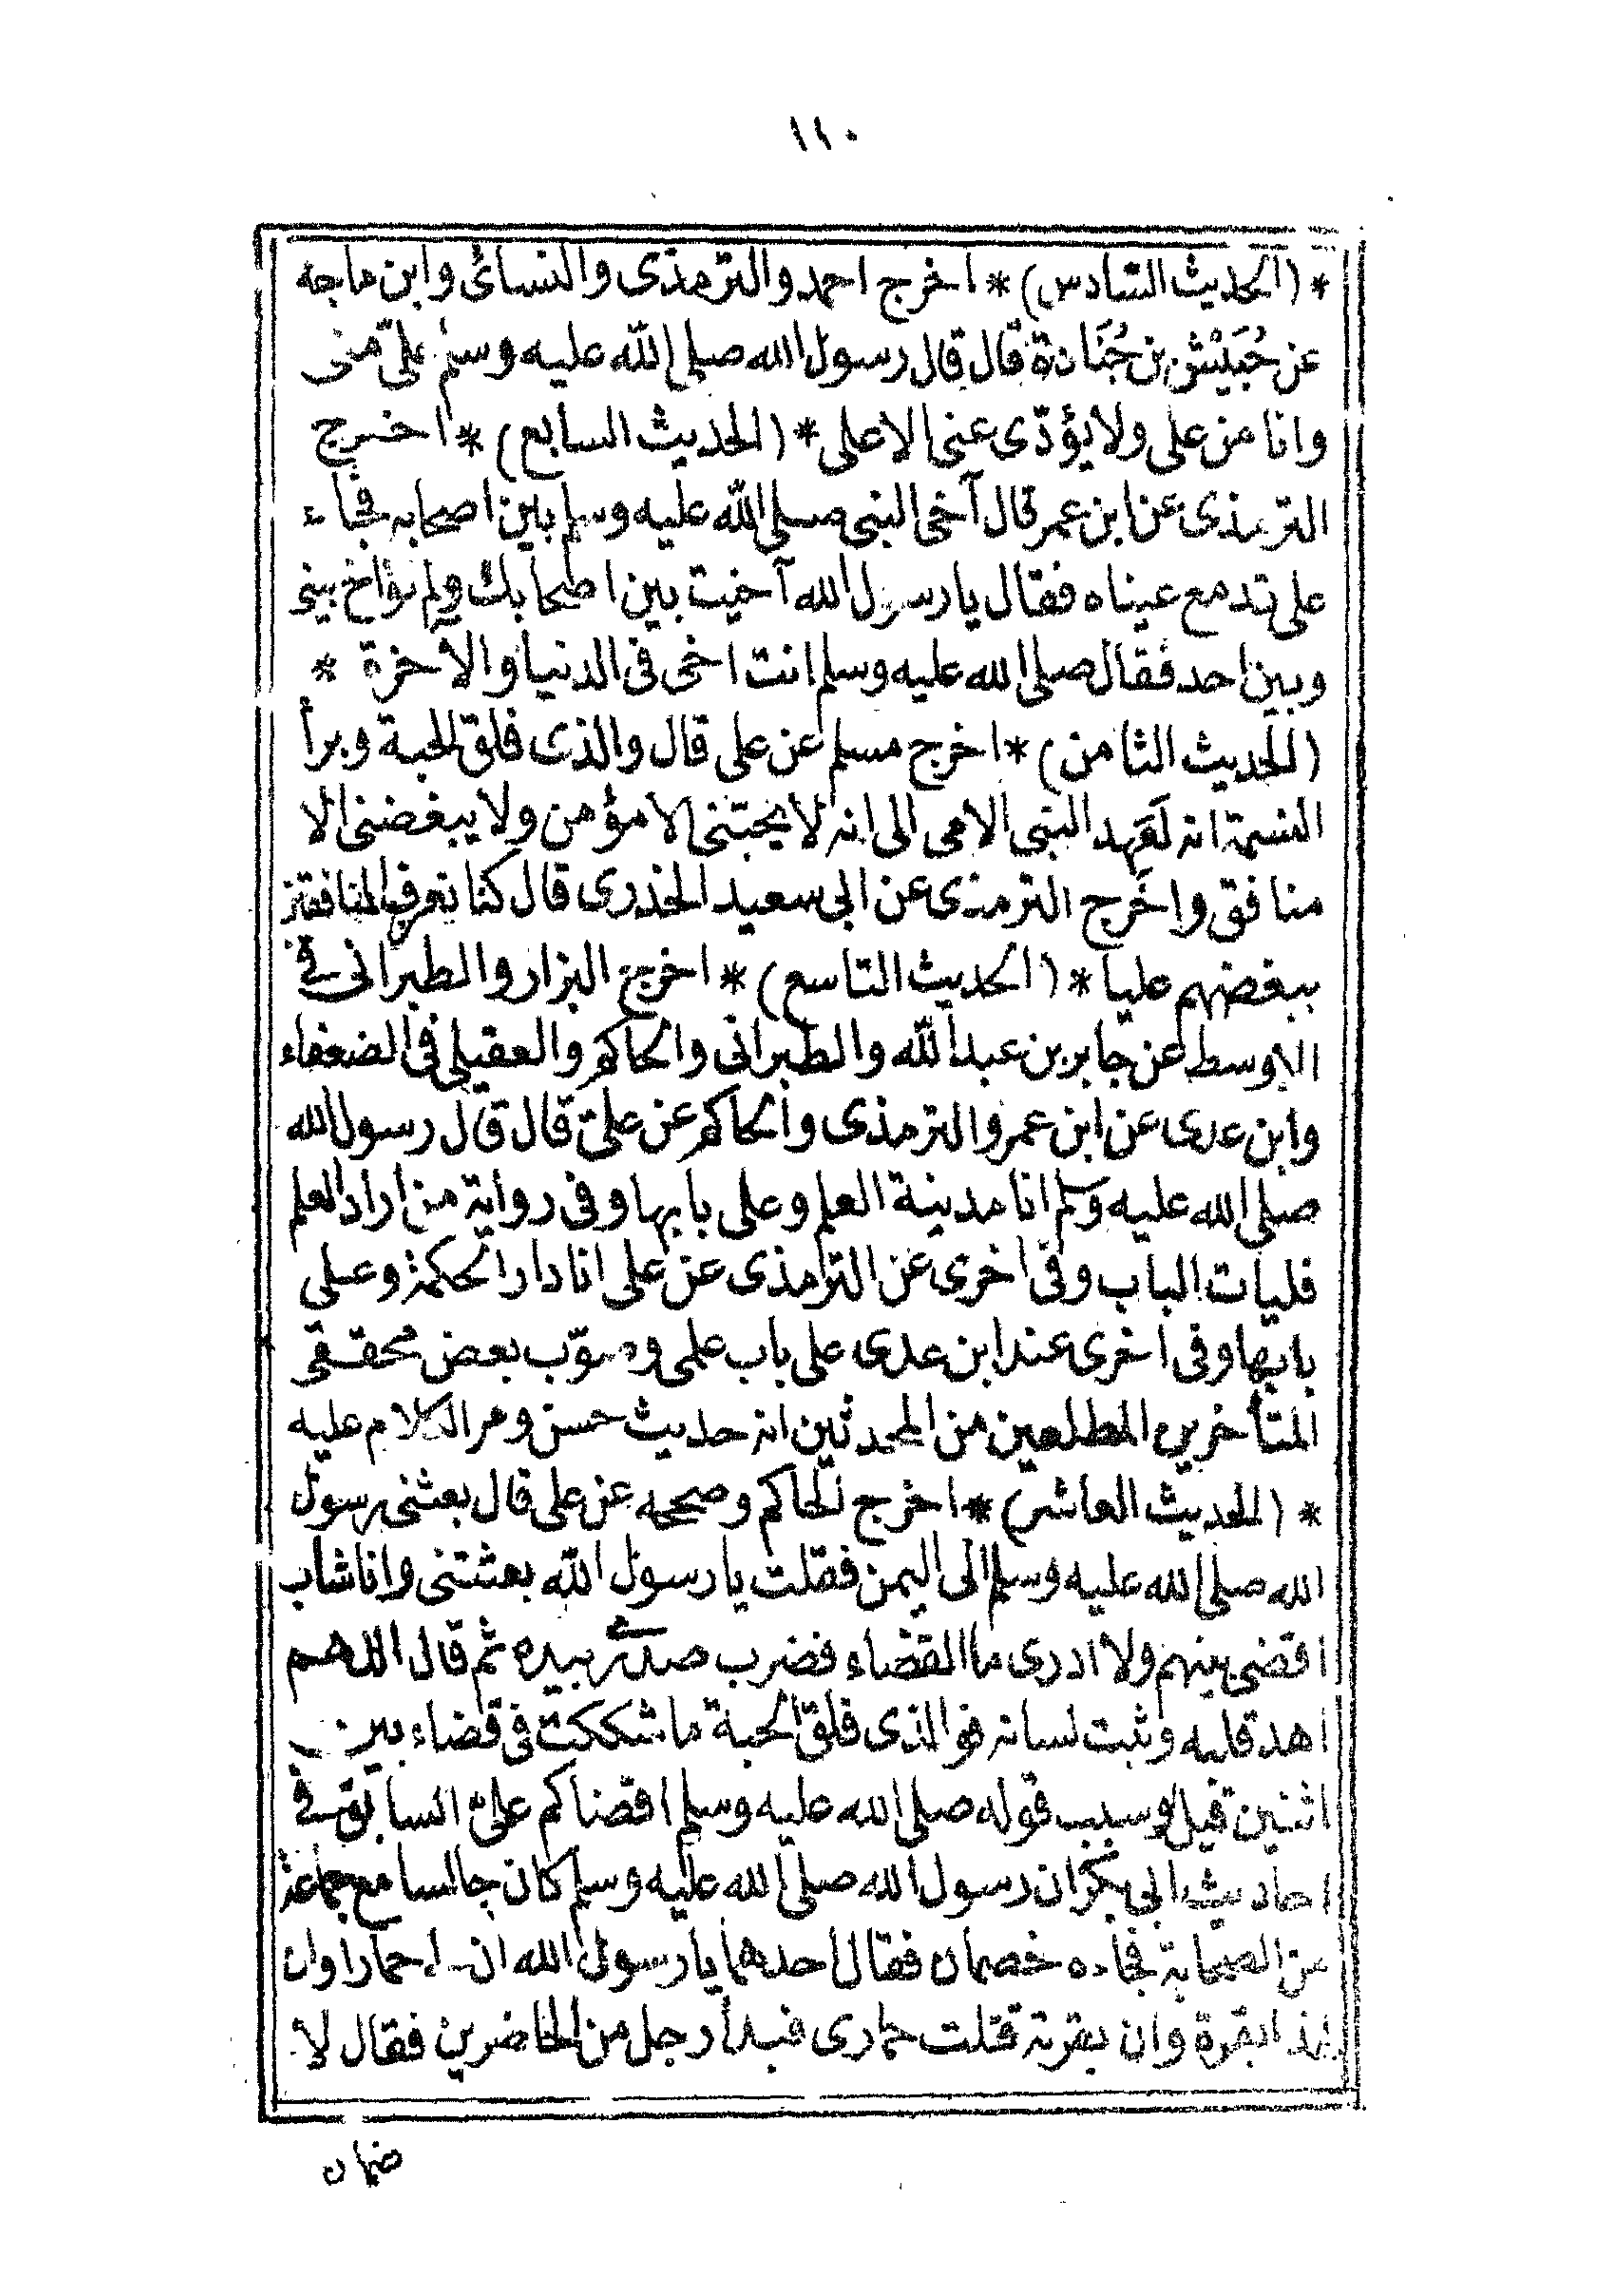 ١١٠
* (الحديث السادس) * اخرج احمد والترمذى والنسائى وابن ماجه
عن حُبَيْش بن جُنَادة قال قال رسول الله صلى الله عليه وسلم علىّ منى
وانا من على ولا يؤدّى عنى الا على * (الحديث السابع) * اخرج
الترمذى عن ابن عمر قال آخى النبى صلى الله عليه وسلم بين اصحابه فجاء
على تدمع عيناه فقال يا رسول الله آخيت بين اصحابك ولم تؤاخ بينى
وبين احد فقال صلى الله عليه وسلم انت اخى فى الدنيا والآخرة *
(الحديث الثامن) * اخرج مسلم عن على قال والذى فلق الحبة وبرأ
النسمة انه لَعَهِد النبى الامى الى انه لا يحبّنى الا مؤمن ولا يبغضنى الا
منافق واخرج الترمذى عن ابى سعيد الخدرى قال كنا نعرف المنافقين
ببغضهم عليا * (الحديث التاسع) * اخرج البزار والطبرانى فى
الاوسط عن جابر بن عبد الله والطبرانى والحاكم والعقيلى فى الضعفاء
وابن عدى عن ابن عمر والترمذى والحاكم عن علىّ قال قال رسول الله
صلى الله عليه وسلم انا مدينة العلم وعلى بابها وفى رواية من اراد العلم
فليات الباب وفى اخرى عن الترمذى عن على انا دار الحكمة وعلى
بابها وفى اخرى عند ابن عدى على باب علمى وصوّب بعض محققى
المتأخرين المطلعين من المحدثين انه حديث حسن ومر الكلام عليه
* (الحديث العاشر) * اخرج الحاكم وصححه عن على قال بعثنى رسول
الله صلى الله عليه وسلم الى اليمن فقلت يا رسول الله بعثتنى وانا شاب
اقضى بينهم ولا ادرى ما القضاء فضرب صدرى بيده ثم قال اللهم
اهد قلبه وثبت لسانه فوالذى فلق الحبة ما شككت فى قضاء بين
اثنين قيل وسبب قوله صلى الله عليه وسلم اقضاكم علىّ السابق فى
احاديث ابى بكر ان رسول الله صلى الله عليه وسلم كان جالسا مع جماعة
من الصحابة فجاءه خصمان فقال احدهما يا رسول الله ان لى حمارا وان
لهذا بقرة وان بقرته قتلت حمارى فبدأ رجل من الحاضرين فقال لا
ضمان